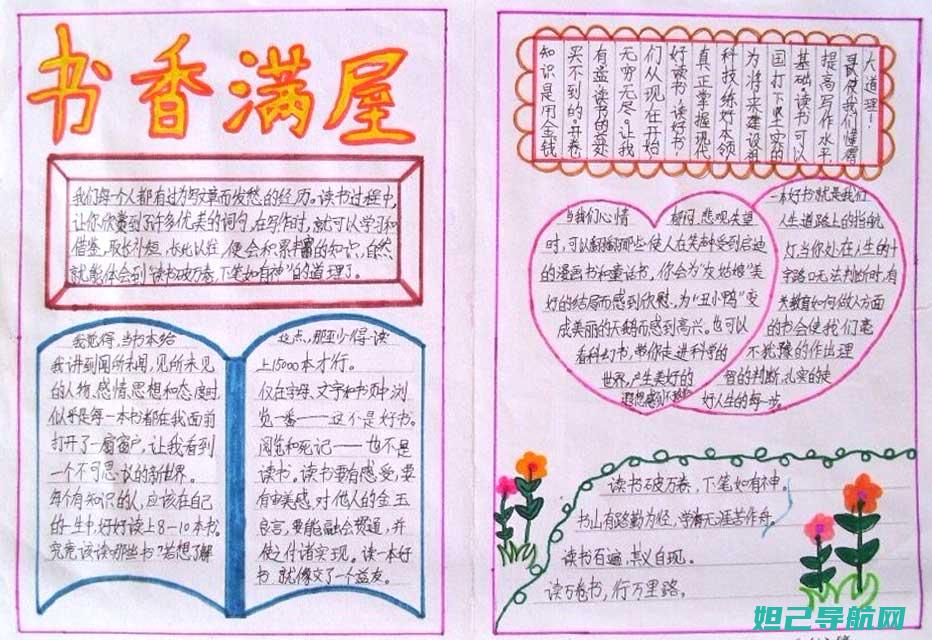 书香满屋
我们每一个人都有过为写文章而发愁的经历。读书过程中,
让你欣赏到了许多优美的词句,在写作时,就可以学习和
借鉴,取长补短,长此以往,便会积累丰富的知识,自然
就能体会到“读书破万卷,下笔如有神”的道理了。
我觉得,当书本给
我讲到闻所未闻,见所未见
的人物、感情、思想和态度时,
似乎是每一本书都在我面前
打开了一扇窗户,让我看到
一个不可思议的新世界。
每个有知识的人,应该在自己
的一生中,好好读上8-10本书。
究竟该读哪些书?若想了解
这点,那至少得读
上15000本才行。
仅在字母、文字和书页中浏
览一番——这不是好书。
阅览和死记——也不是
读书。读书要有感受,要
有审美感,对他人的金玉
良言,要能融会贯通,并
使之付诸实现。读一本好
书,就像交了一个益友。
大道理!
哥歌使我们懂得
提高写作水平,
基础。读书可以
国打下坚实的
为将来建设祖
科技,练好本领
真正掌握现代
好读书,读好书!
们从现在开始
无穷无尽。让我
有益读书的获
买不到的。开卷
知识是用金钱
当我们心情
郁闷、悲观失望
时,可以翻翻那些使人在笑声中受到启迪
的漫画书和童话书。你会为“灰姑娘”美
好的结局而感到欣慰、为“丑小鸭”变
成美丽的天鹅而感到高兴。也可以
看科幻书,带你走进科学的
世界,产生美好的
遐想感到不
一本好书就是我们
人生道路上的指航
灯,当你处在人生的十
字路口无法判断时,有
关教育如何做人方面
的书会使我们毫
不犹豫的作出理
智的判断,扎实的走
好人生的每一步。
读书破万卷,下笔如有神。
书山有路勤为径,学海无涯苦作舟。
读书百遍,其义自现。
读万卷书,行万里路。
妲己导航网